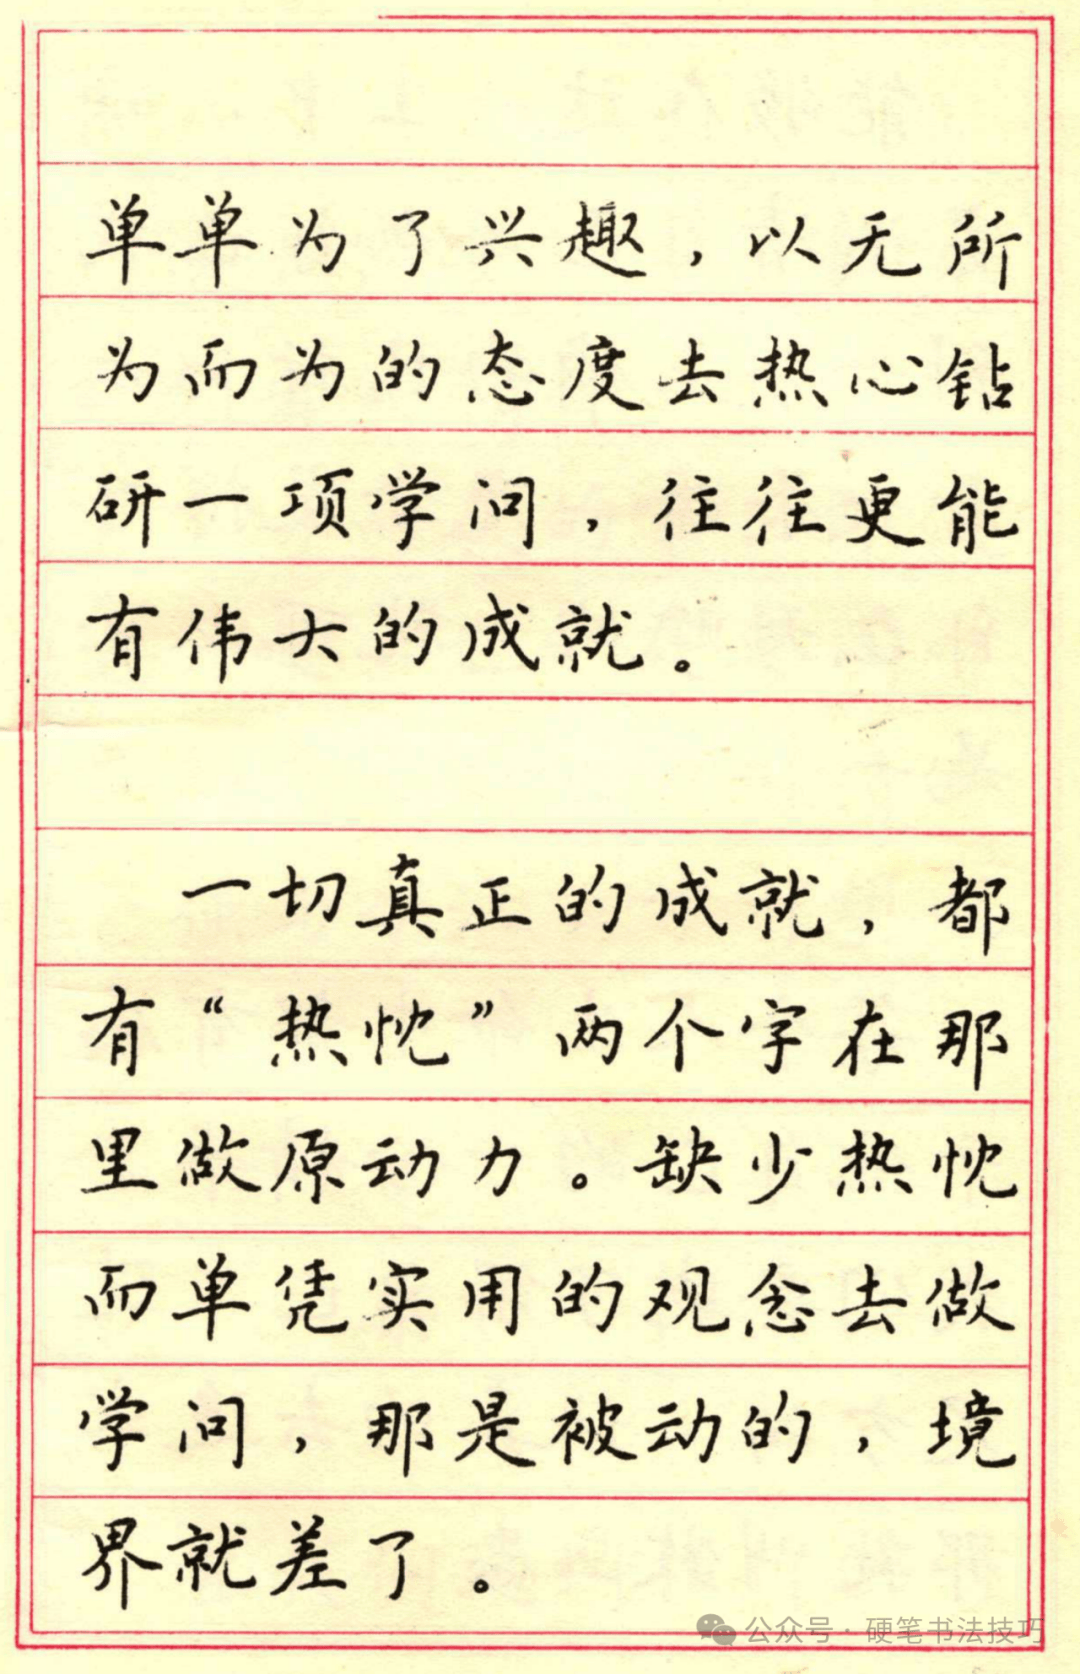 单单为了兴趣，以无所
为而为的态度去热心钻
研一项学问，往往更能
有伟大的成就。
一切真正的成就，都
有“热忱”两个字在那
里做原动力。缺少热忱
而单凭实用的观念去做
学问，那是被动的，境
界就差了。
公众号·硬笔书法技巧